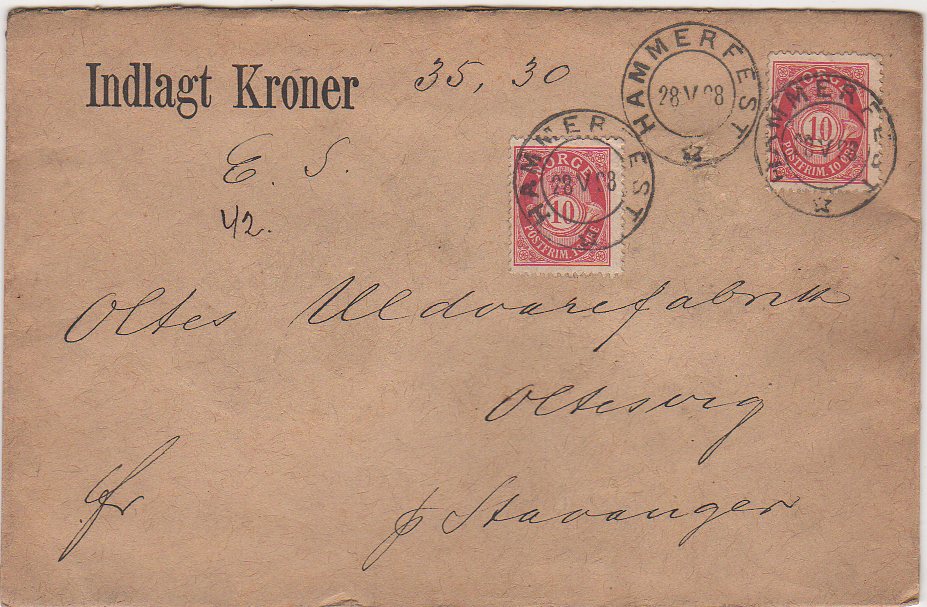 Indlagt Kroner 35,30
HAMMERFEST
28 V 08
HAMMERFEST
28 V 08
NORGE
10
POSTFRIM. 10 ØRE
HAMMERFEST
NORGE
10
POSTFRIM. 10 ØRE
E. S.
42.
Oltes Uldvarefabrik
Oltesvig
fr
p Stavanger